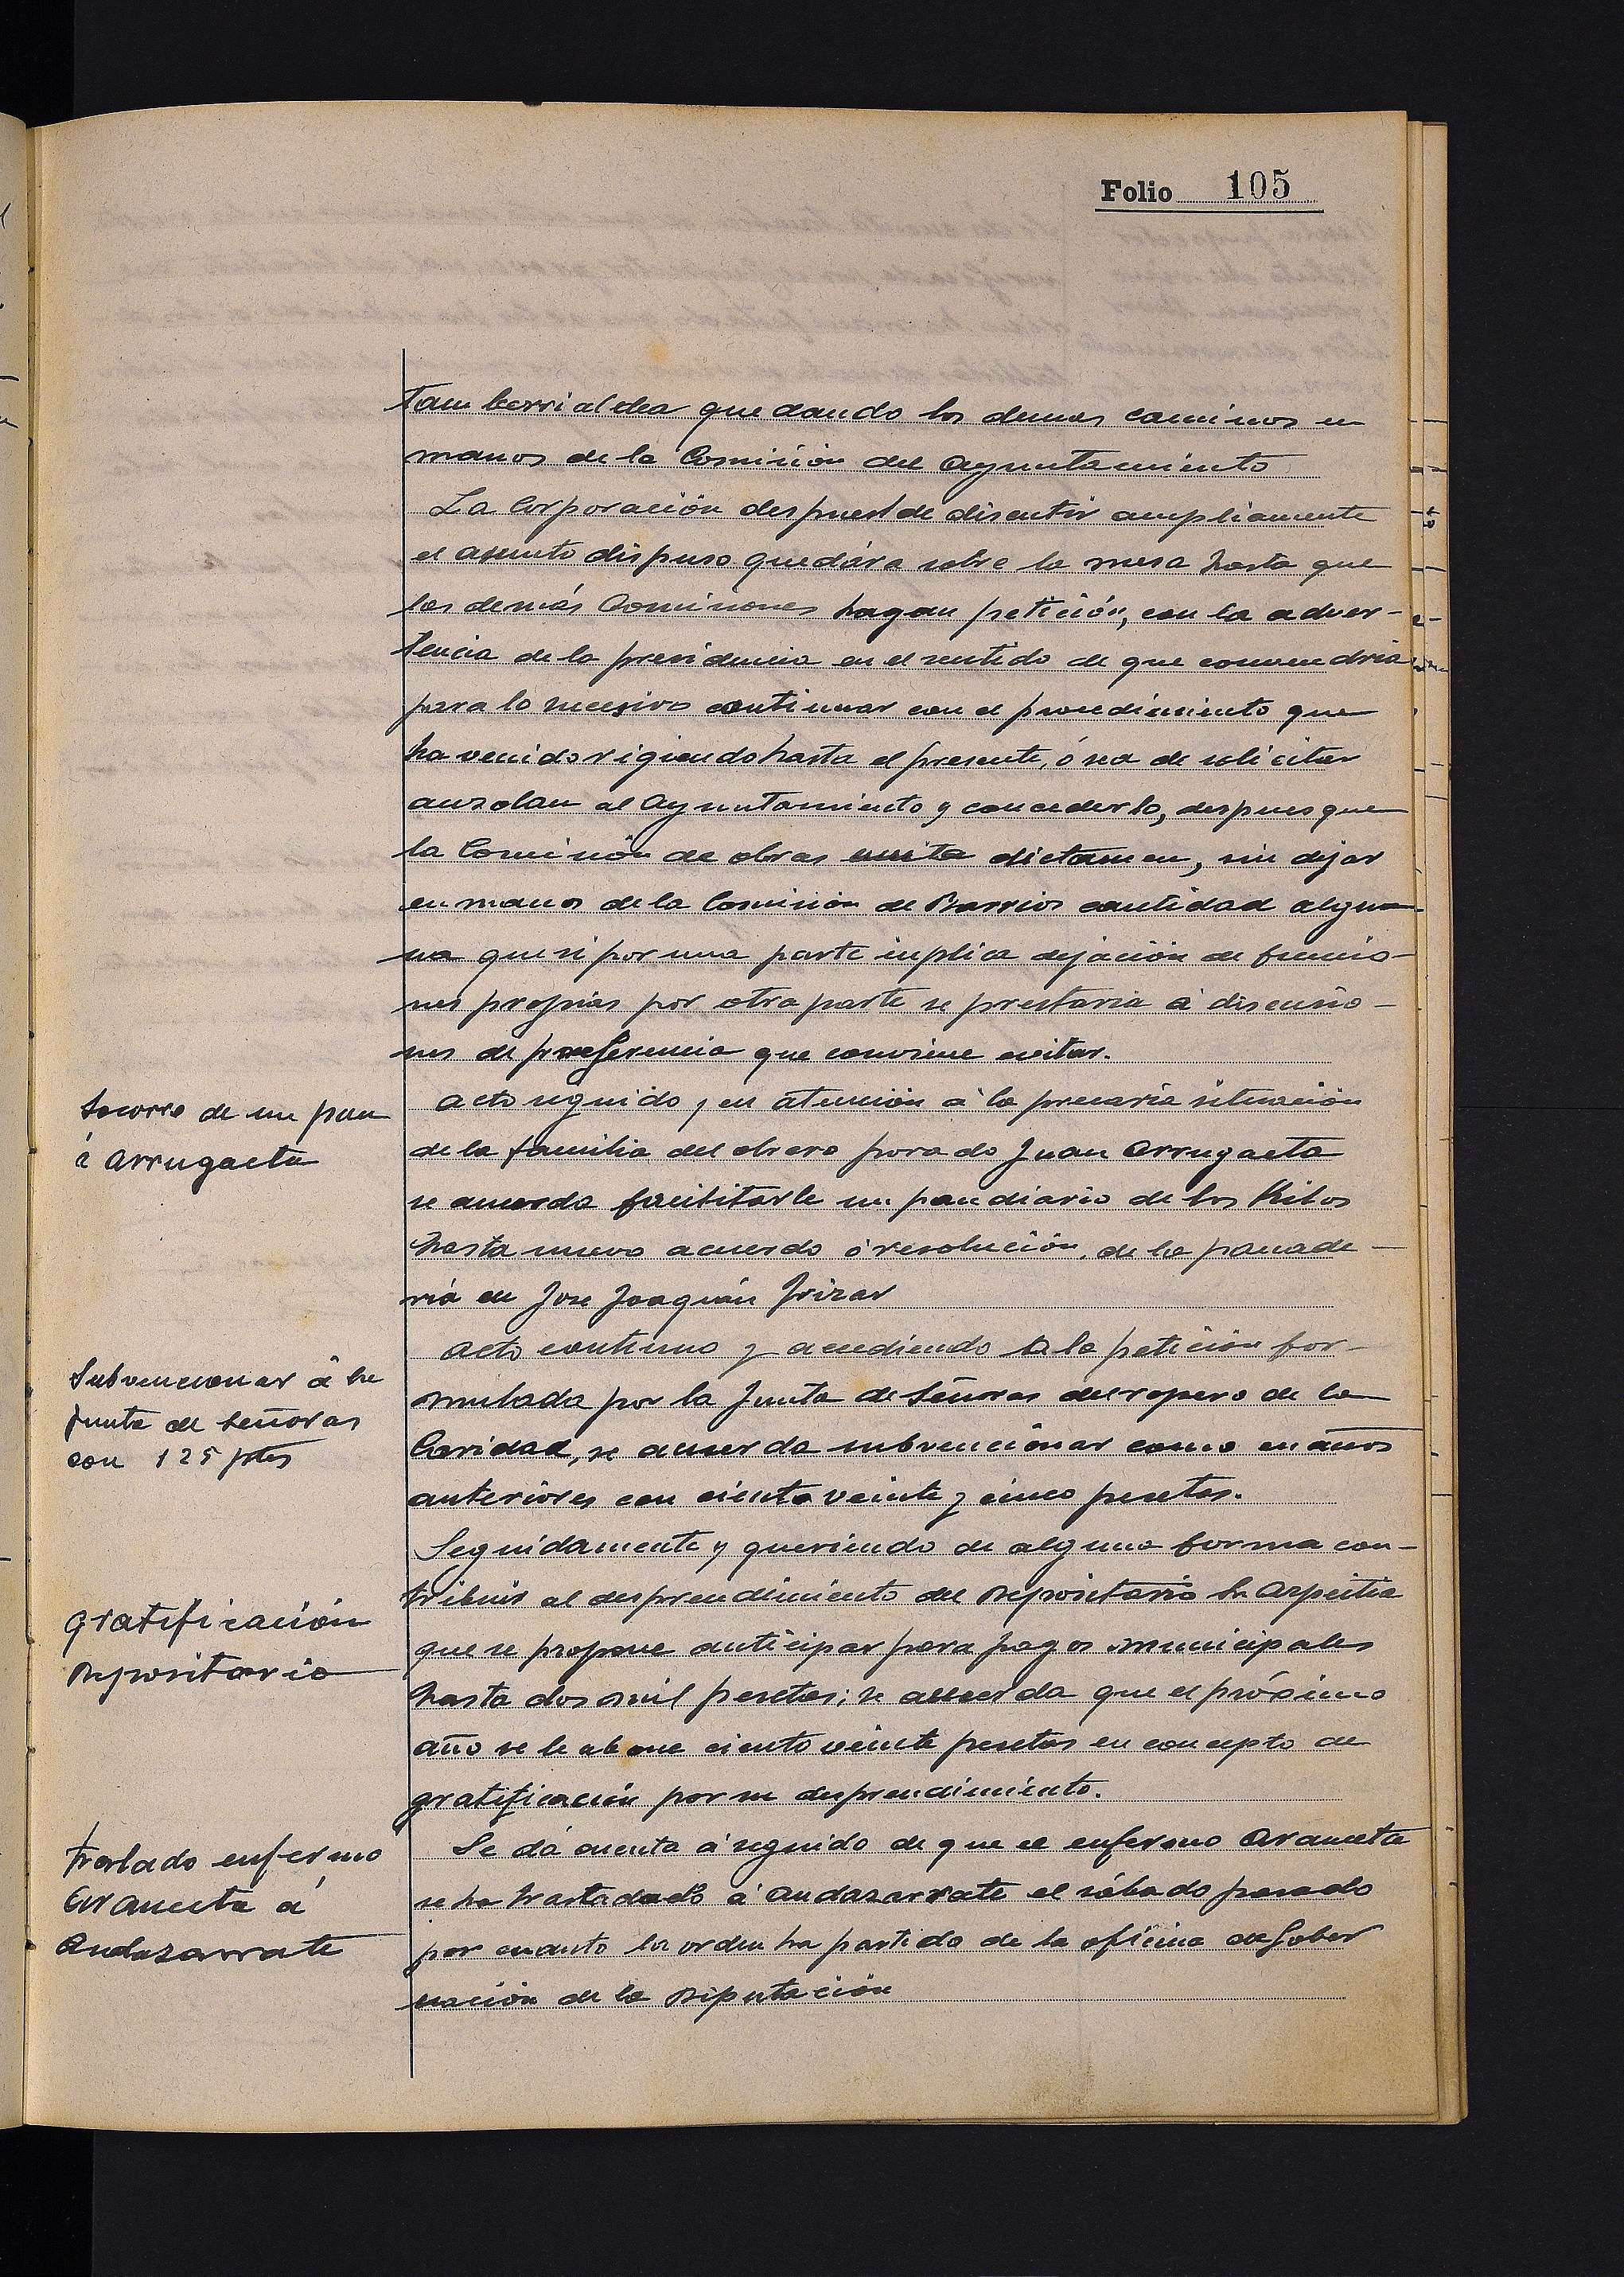 Folio 105
Tam berrialdea quedando los demas caminos en
manos de la Comisión del Ayuntamiento
La Corporación despues de discutir ampliamente
el asunto dispuso quedára sobre la mesa hasta que
las demás Comisiones hagan petición, con la adver-
tencia de la presidencia en el sentido de que convendria
para lo sucesivo continuar con el procedimiento que
ha venido rigiendo hasta el presente, ó sea de solicitar
auzolan al Ayuntamiento y concederlo, despues que
la Comisión de obras emita dictamen, sin dejar
en manos de la Comisión de Barrios cantidad algu-
na que si por una parte implica dejación de funcio-
nes propias por otra parte se prestaria á discusio-
nes de preferencia que conviene evitar.
Socorro de un pan
á Arrugaeta
Acto seguido y en atención á la precaria situación
de la familia del obrero parado Juan Arrugaeta
se acuerda facilitarle un pan diario de dos Kilos
hasta nuevo acuerdo ó resolución, de la panade-
ria de Jose Joaquin Irizar
Subvencionar á la
Junta de Señoras
con 125 ptas
Acto continuo y accediendo a la petición for-
mulada por la Junta de Señoras del ropero de la
Caridad, se acuerda subvencionar como en años
anteriores con ciento veinte y cinco pesetas.
Seguidamente y queriendo de alguna forma con-
gratificación
depositario
tribuir al desprendimiento del depositario Sr. Azpeitia
que se propone anticipar para pagos municipales
hasta dos mil pesetas; se acuerda que el próximo
año se le abone ciento veinte pesetas en concepto de
gratificación por su desprendimiento.
Traslado enfermo
Aramceta á
Andazarrate
Se dá cuenta á seguido de que el enfermo Aramceta
se ha trastadado á Andazarrate el sábado pasado
por cuanto la orden ha partido de la oficina de Gober
nación de la Diputación